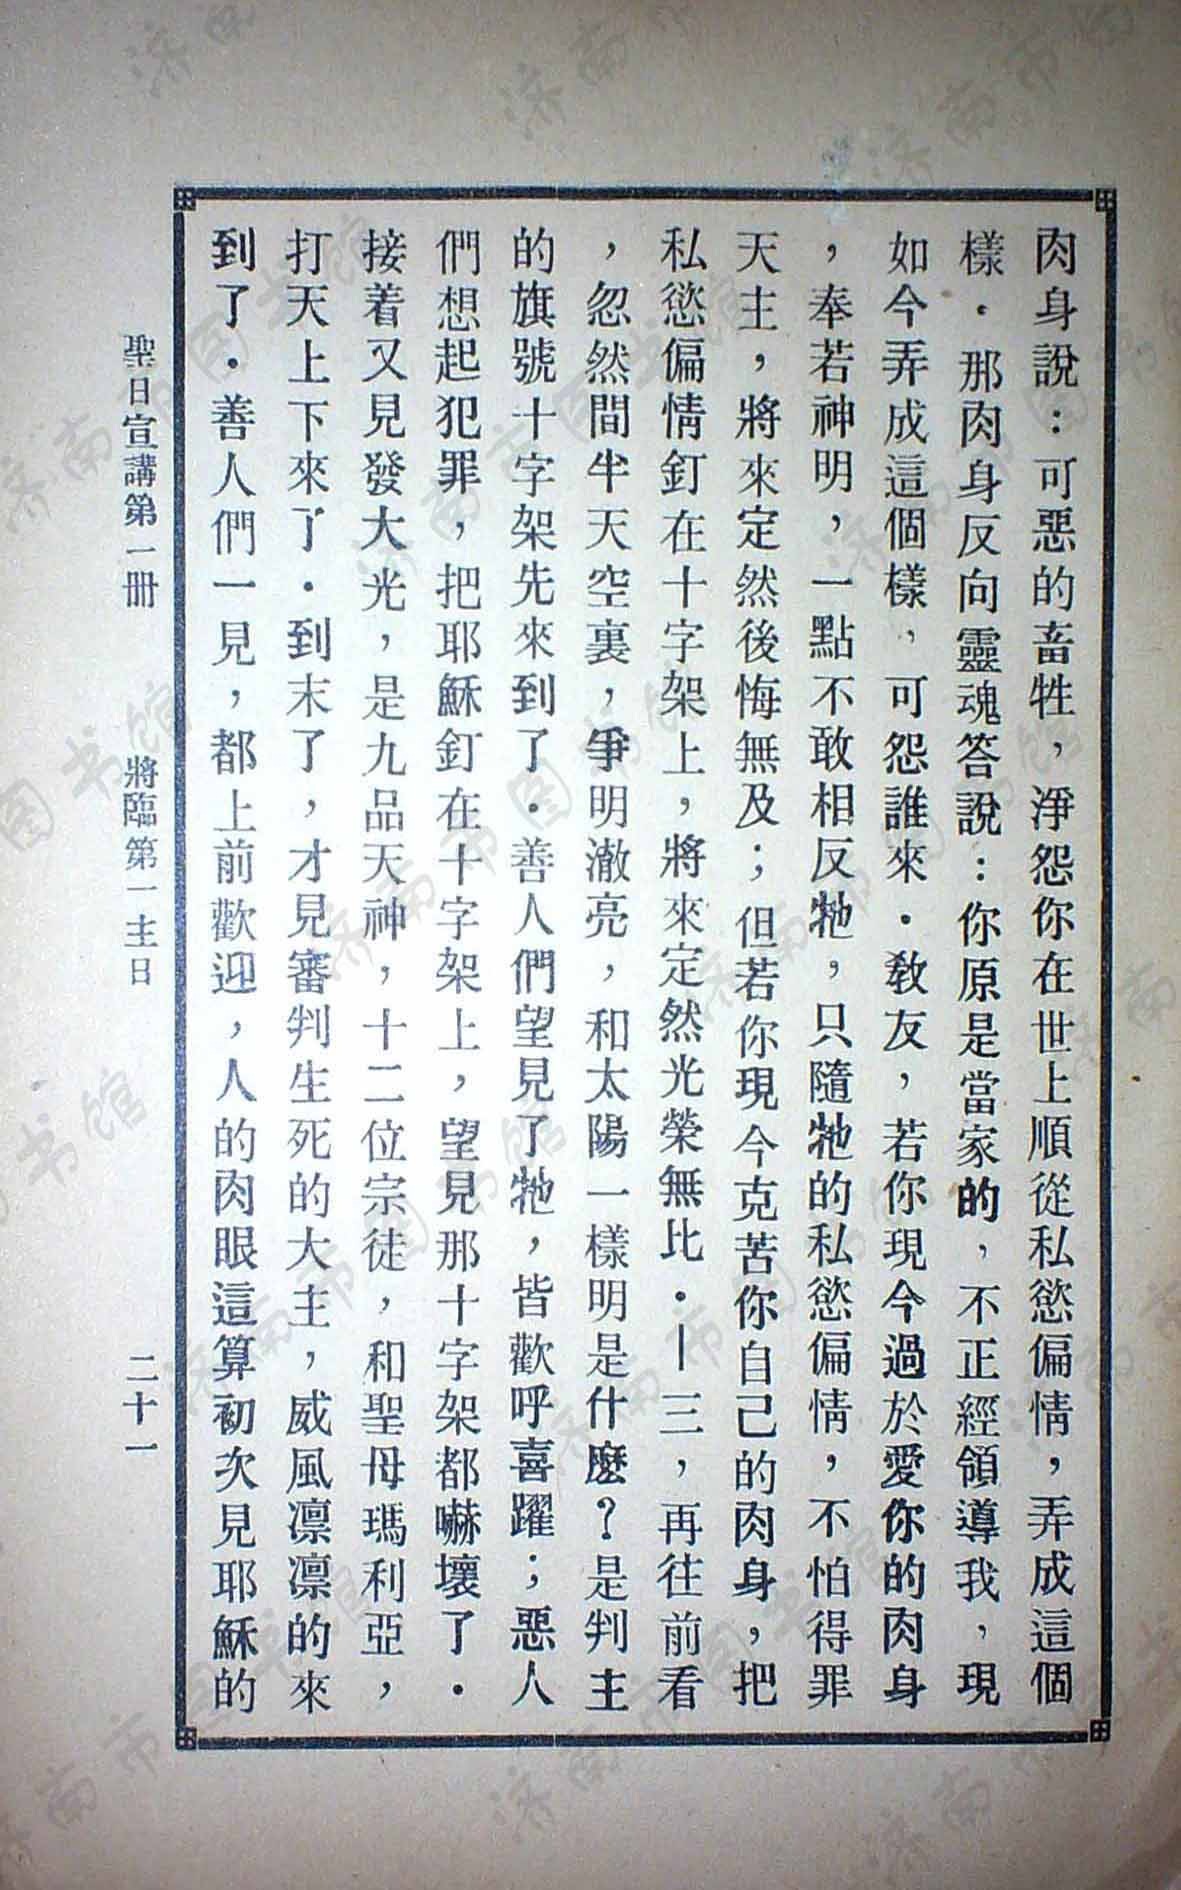 肉身說：可惡的畜牲，淨怨你在世上順從私慾偏情，弄成這個
樣．那肉身反向靈魂答說：你原是當家的，不正經領導我，現
如今弄成這個樣，可怨誰來．敎友，若你現今過於愛你的肉身
，奉若神明，一點不敢相反牠，只隨牠的私慾偏情，不怕得罪
天主，將來定然後悔無及；但若你現今克苦你自己的肉身，把
私慾偏情釘在十字架上，將來定然光榮無比．—三，再往前看
，忽然間半天空裏，爭明澈亮，和太陽一樣明是什麼？是判主
的旗號十字架先來到了．善人們望見了牠，皆歡呼喜躍；惡人
們想起犯罪，把耶穌釘在十字架上，望見那十字架都嚇壞了．
接着又見發大光，是九品天神，十二位宗徒，和聖母瑪利亞，
打天上下來了．到末了，才見審判生死的大主，威風凛凛的來
到了．善人們一見，都上前歡迎，人的肉眼這算初次見耶穌的
聖日宣講第一冊　將臨第一主日　二十一
济南市图书馆